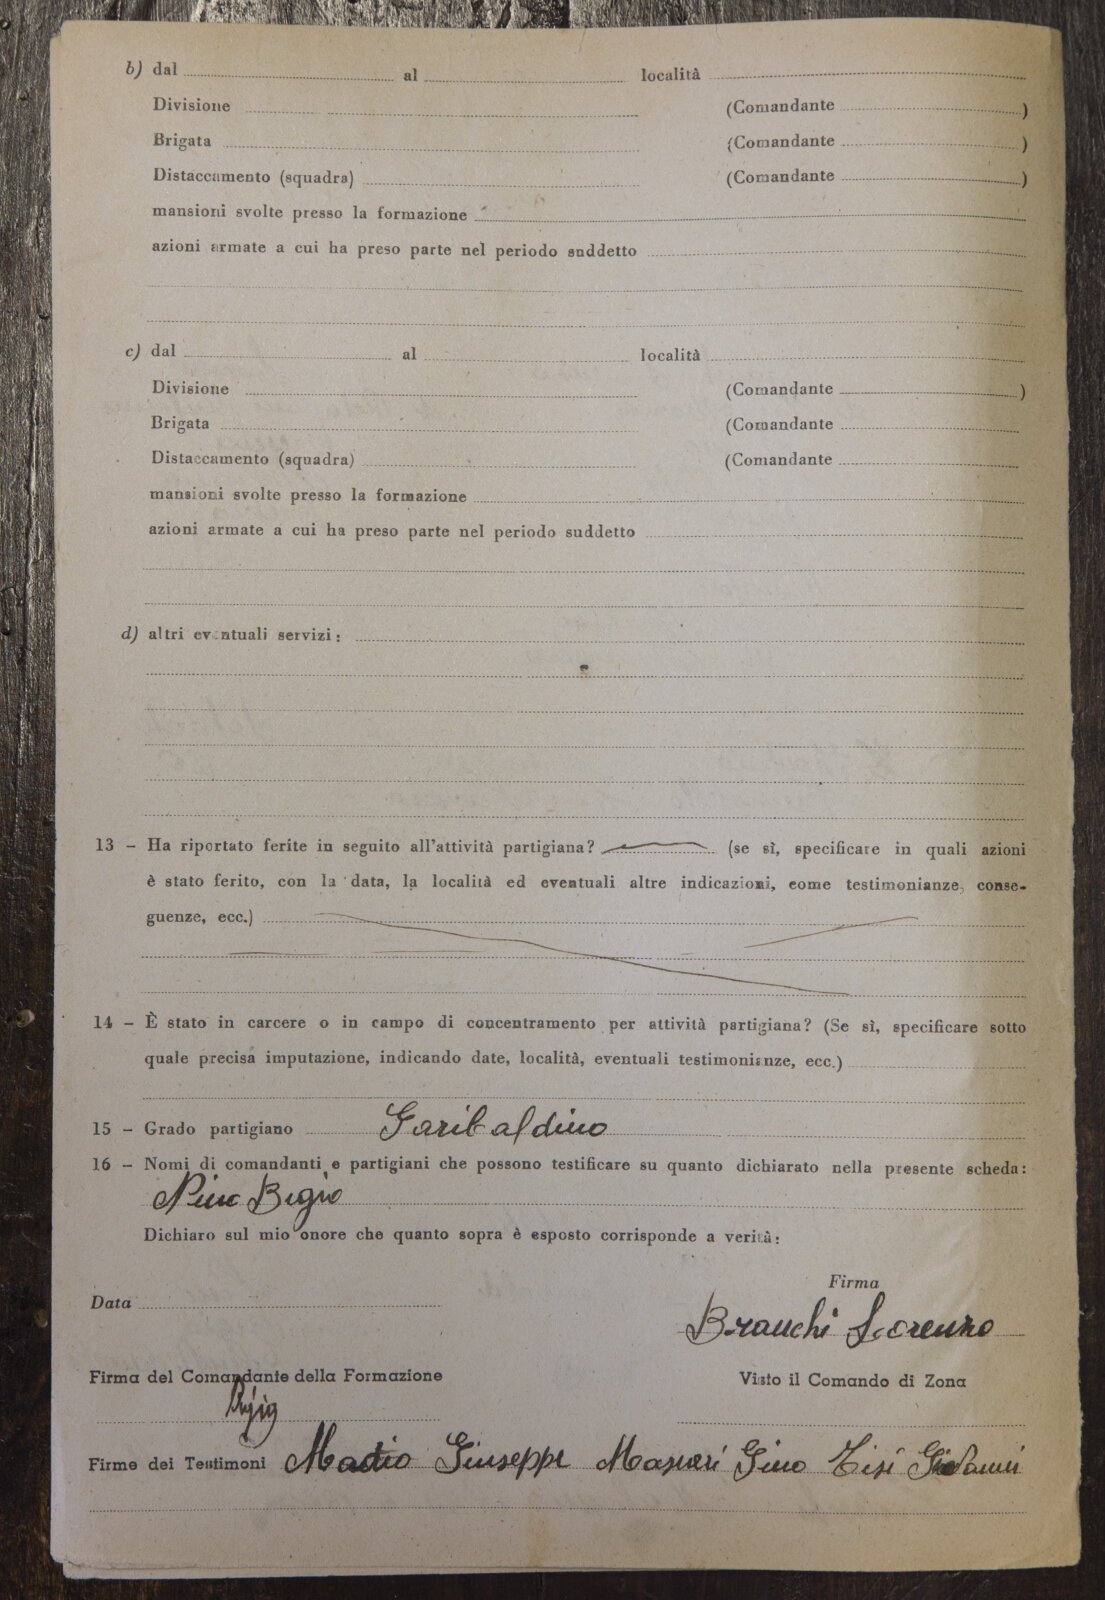 b) dal al località
Divisione (Comandante )
Brigata (Comandante )
Distaccamento (squadra) (Comandante )
mansioni svolte presso la formazione
azioni armate a cui ha preso parte nel periodo suddetto
c) dal al località
Divisione (Comandante )
Brigata (Comandante
Distaccamento (squadra) (Comandante
mansioni svolte presso la formazione
azioni armate a cui ha preso parte nel periodo suddetto
d) altri eventuali servizi:
13 – Ha riportato ferite in seguito all'attività partigiana? (se sì, specificare in quali azioni
è stato ferito, con la data, la località ed eventuali altre indicazioni, come testimonianze, conse-
guenze, ecc.)
14 – È stato in carcere o in campo di concentramento per attività partigiana? (Se sì, specificare sotto
quale precisa imputazione, indicando date, località, eventuali testimonianze, ecc.)
15 – Grado partigiano Garibaldino
16 – Nomi di comandanti e partigiani che possono testificare su quanto dichiarato nella presente scheda:
Nino Begio
Dichiaro sul mio onore che quanto sopra è esposto corrisponde a verità:
Firma
Data
Branchi Lorenzo
Firma del Comandante della Formazione Visto il Comando di Zona
Firme dei Testimoni Madio Giuseppe Gino Tisi Giovanni